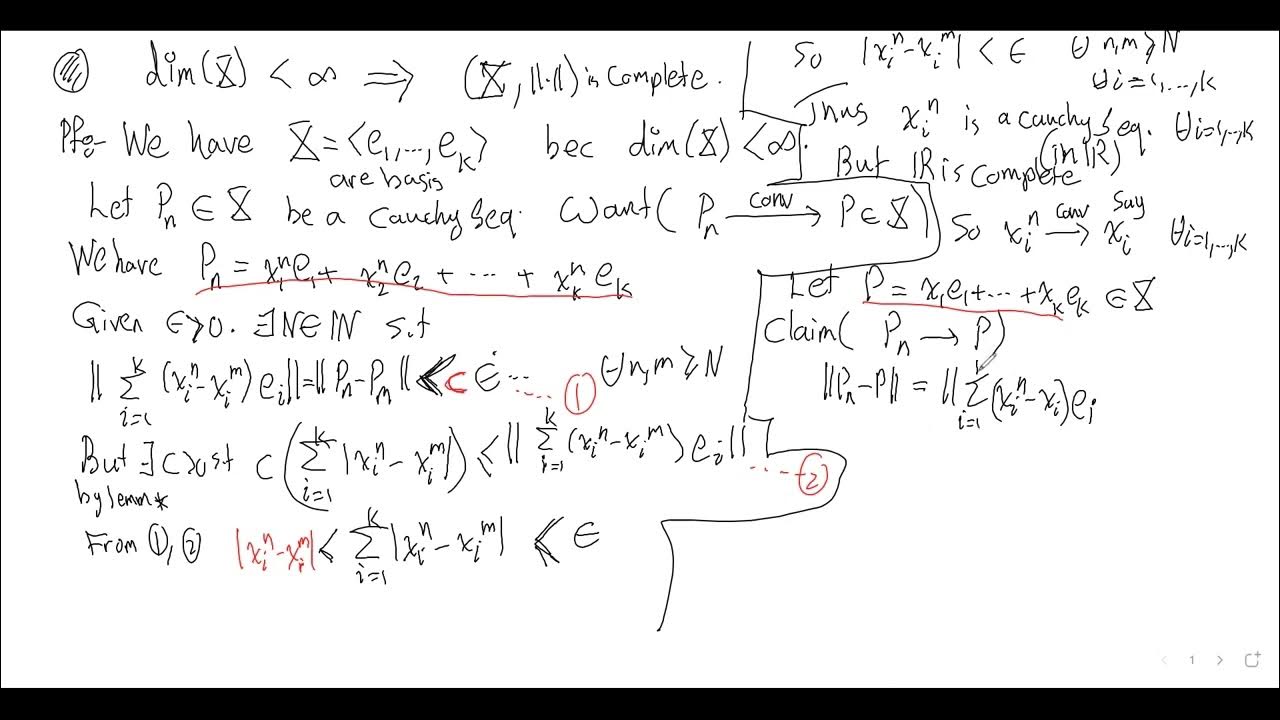 dim(X) < ∞ ⟹ (X, ||·||) is Complete.
Pf:- We have X = <e₁,...,e_k> bec dim(X) < ∞.
are basis
Let Pₙ ∈ X be a cauchy seq. Want( Pₙ conv⟶ P ∈ X )
We have Pₙ = x₁ⁿe₁ + x₂ⁿe₂ + ... + x_kⁿ e_k
Given ϵ>0. ∃N∈ℕ s.t
|| ∑_{i=1}^{k} (x_iⁿ - x_iᵐ) e_i || = || Pₙ - Pₘ || < c ϵ ... ① ∀n,m ≥ N
But ∃ c>0 st c( ∑_{i=1}^{k} |x_iⁿ - x_iᵐ| ) ≤ || ∑_{i=1}^{k} (x_iⁿ - x_iᵐ) e_i || ... ②
by lemm*
From ①, ② |x_iⁿ - x_iᵐ| ≤ ∑_{i=1}^{k} |x_iⁿ - x_iᵐ| < ϵ
So |x_iⁿ - x_iᵐ| < ϵ ∀ n,m ≥ N
∀i=1,...,k
Thus x_iⁿ is a cauchy seq. ∀i=1,..,k
(in ℝ)
But ℝ is complete
So x_iⁿ conv⟶ say x_i ∀i=1,..,k
Let P = x₁e₁ + ... + x_k e_k ∈ X
Claim( Pₙ ⟶ P )
||Pₙ - P|| = || ∑_{i=1}^{k} (x_iⁿ - x_i) e_i
1